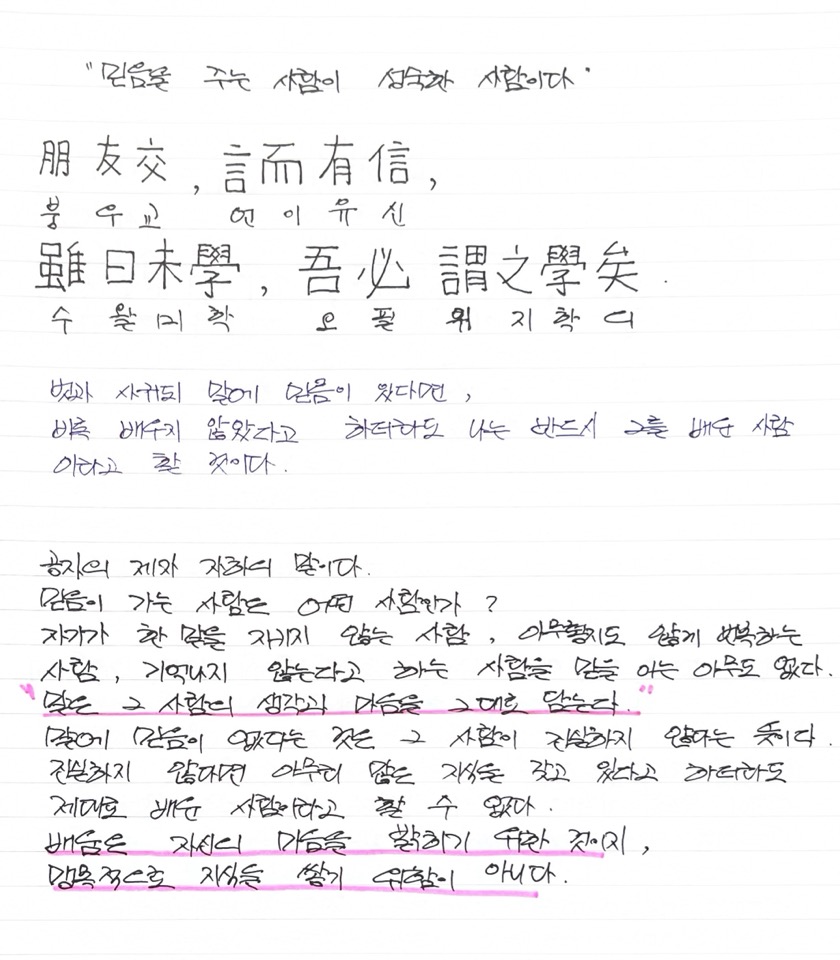 "믿음을 주는 사람이 성숙한 사람이다"
朋友交, 言而有信,
붕우교 언이유신
雖曰未學, 吾必謂之學矣.
수왈미학 오필위지학의
벗과 사귀되 말에 믿음이 있다면,
비록 배우지 않았다고 하더라도 나는 반드시 그를 배운 사람
이라고 할 것이다.
공자의 제자 자하의 말이다.
믿음이 가는 사람은 어떤 사람인가?
자기가 한 말을 지키지 않는 사람, 아무렇지도 않게 번복하는
사람, 기억나지 않는다고 하는 사람을 믿을 이는 아무도 없다.
"말은 그 사람의 생각과 마음을 그대로 담는다."
말에 믿음이 없다는 것은 그 사람이 진실하지 않다는 뜻이다.
진실하지 않다면 아무리 많은 지식을 갖고 있다고 하더라도
제대로 배운 사람이라고 할 수 없다.
배움은 자신의 마음을 밝히기 위한 것이지,
맹목적으로 지식을 쌓기 위함이 아니다.